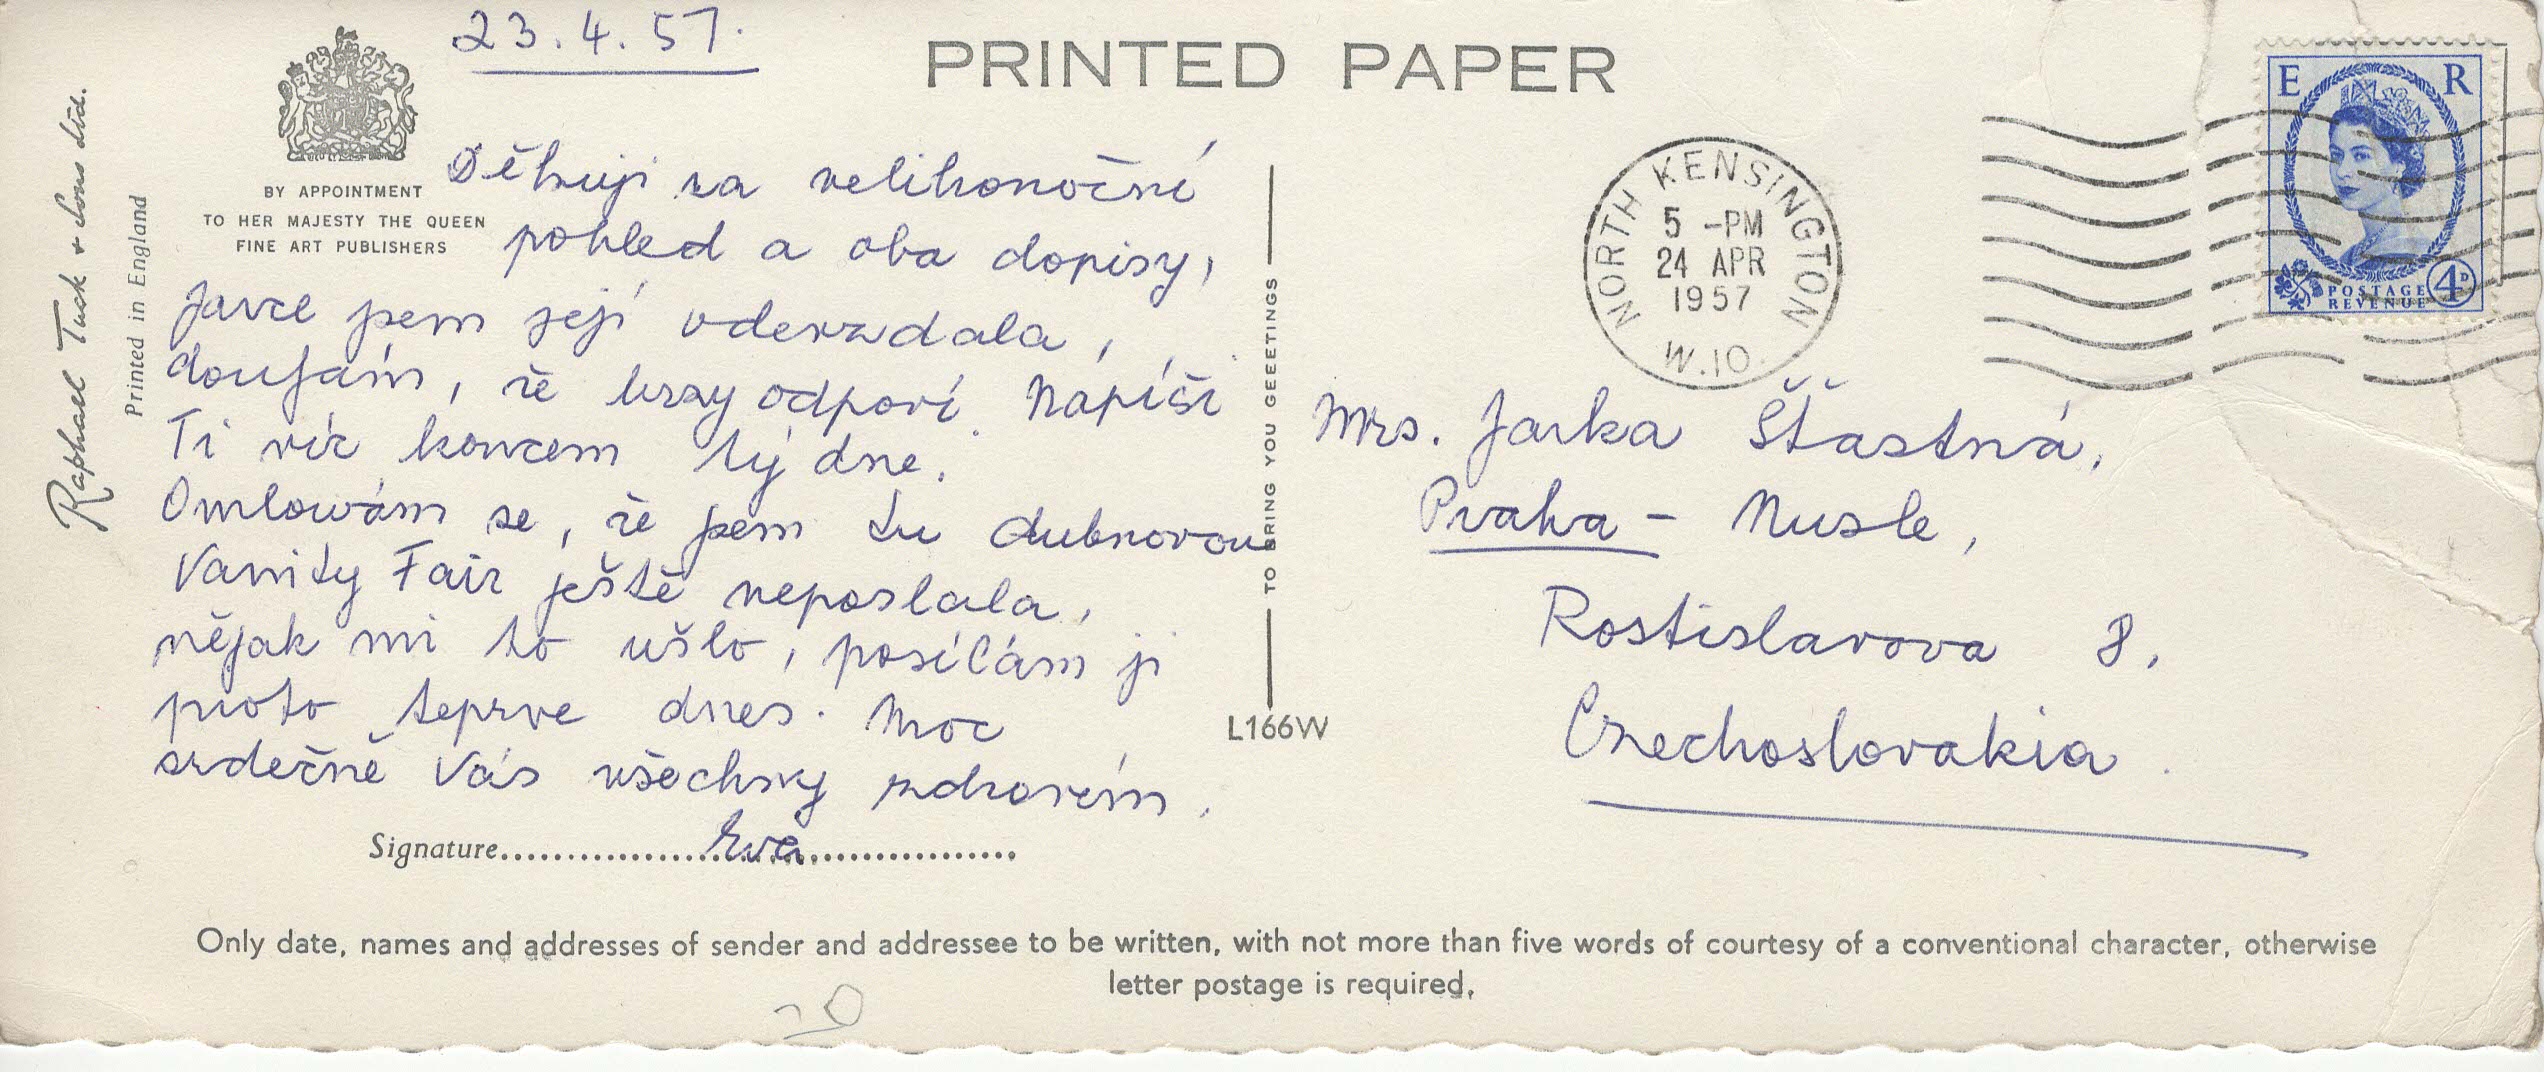 23.4.57.
PRINTED PAPER
BY APPOINTMENT
TO HER MAJESTY THE QUEEN
FINE ART PUBLISHERS
Raphael Tuck & Sons Ltd.
Printed in England
Děkuji za velikonoční
pohled a oba dopisy,
Jarce jsem její odevzdala,
doufám, že brzy odpoví. Napíši
Ti víc koncem týdne.
Omlouvám se, že jsem tu dubnovou
Vanity Fair ještě neposlala,
nějak mi to ušlo, posílám ji
proto teprve dnes. Moc
srdečně Vás všechny zdravím.
Signature Eva
TO BRING YOU GEETINGS
L166W
NORTH KENSINGTON
5 -PM
24 APR
1957
W.10
E R
POSTAGE
REVENUE
4D
Mrs. Jarka Šťastná,
Praha - Nusle,
Rostislavova 8,
Czechoslovakia.
Only date, names and addresses of sender and addressee to be written, with not more than five words of courtesy of a conventional character, otherwise
letter postage is required.